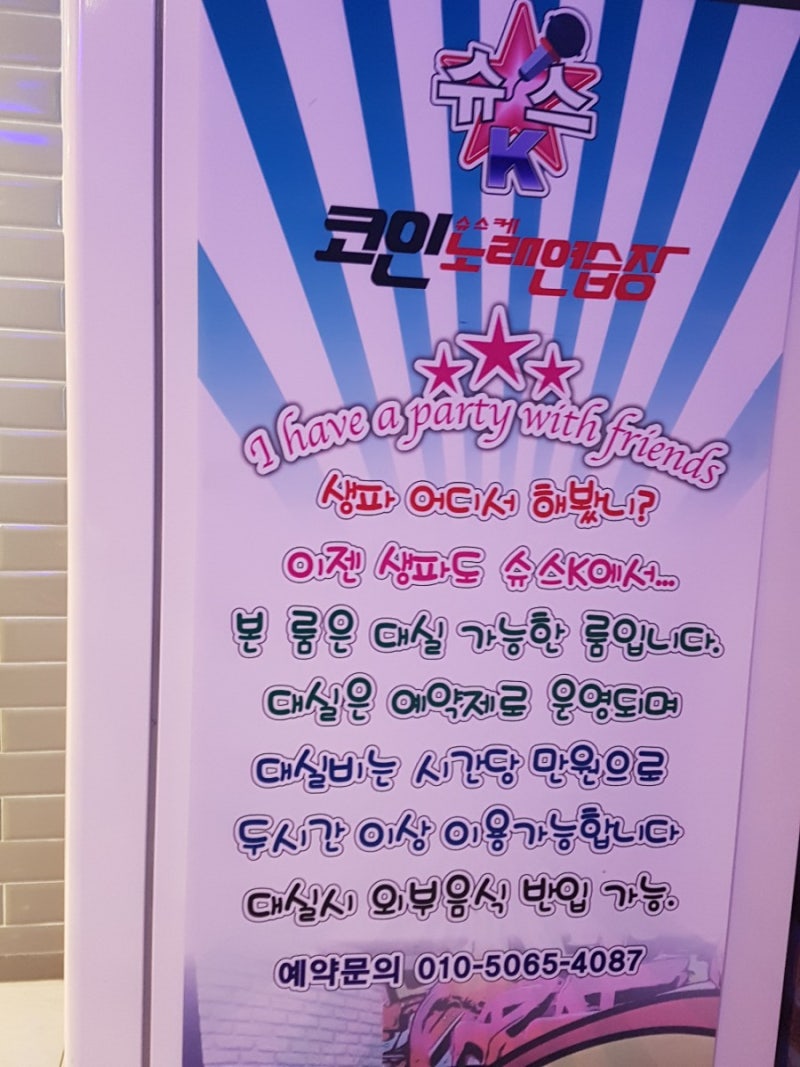 슈스
K
슈스케
코인노래연습장
I have a party with friends
생파 어디서 해봤니?
이젠 생파도 슈스K에서...
본 룸은 대실 가능한 룸입니다.
대실은 예약제로 운영되며
대실비는 시간당 만원으로
두시간 이상 이용가능합니다
대실시 외부음식 반입 가능.
예약문의 010-5065-4087